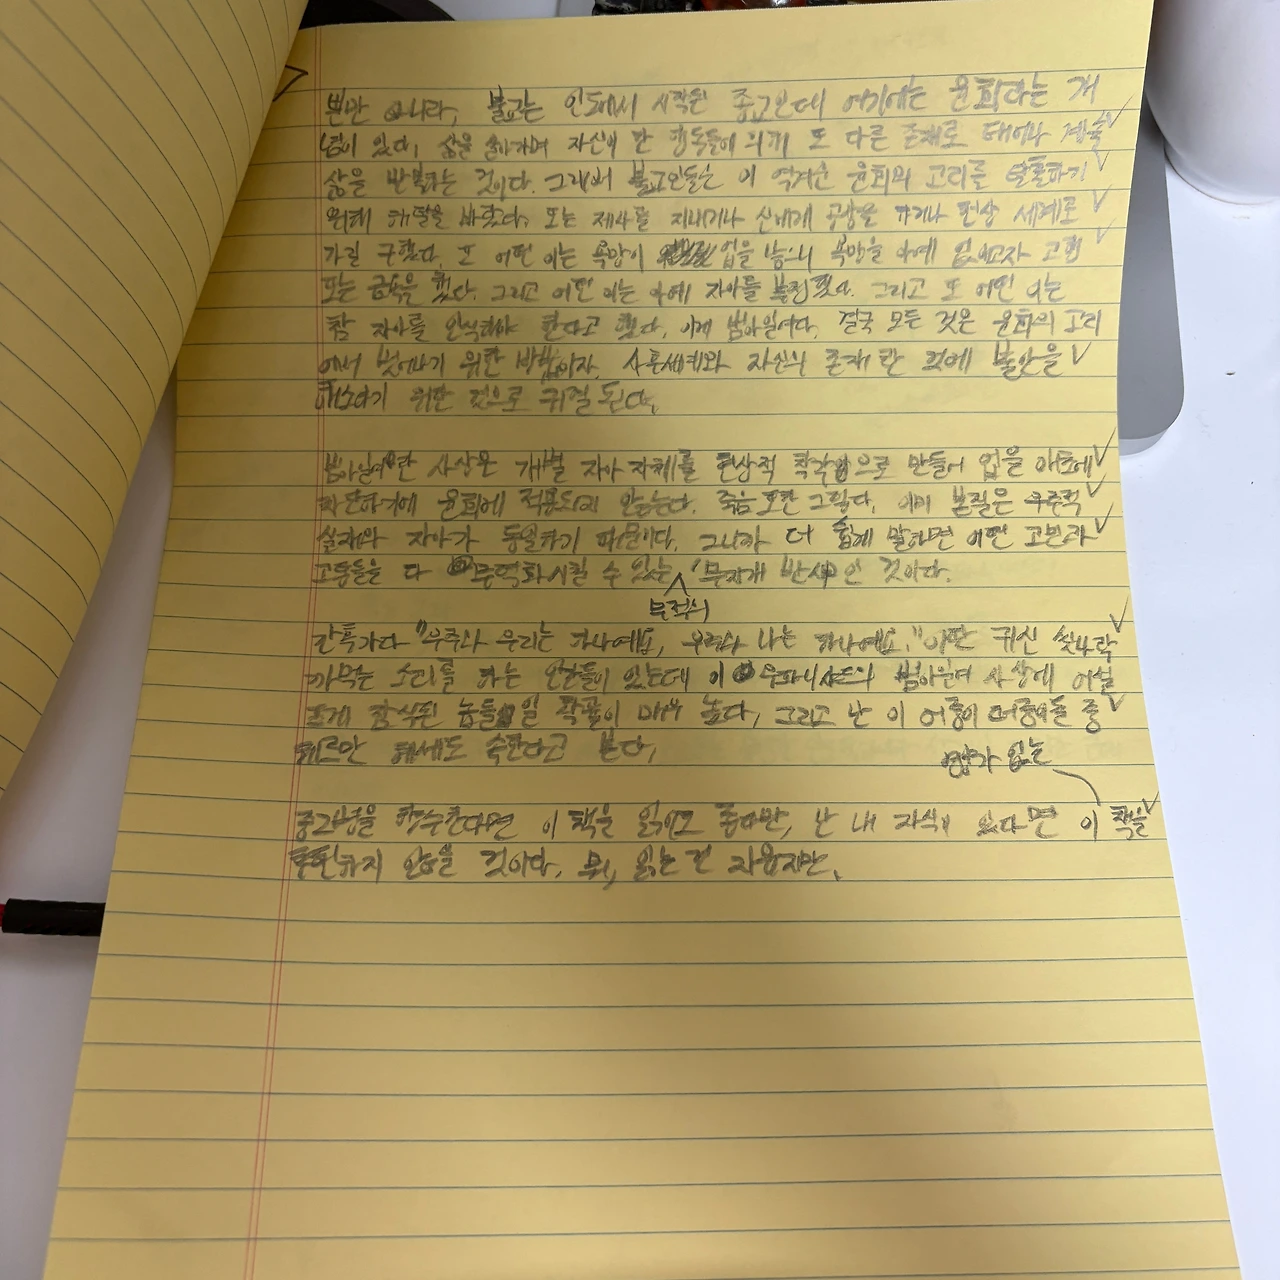 뿐만 아니라, 불교는 인도에서 시작된 종교인데 여기에는 윤회라는 개
념이 있다. 삶을 살아가며 자신이 한 행동들에 의해 또 다른 존재로 태어나 계속
삶을 반복하는 것이다. 그래서 불교인들은 이 역겨운 윤회의 고리를 탈출하기
위해 해탈을 바랬다. 또는 제사를 지내거나 신에게 공양을 하거나 천상 세계로
가길 구했다. 또 어떤 이는 욕망이 업을 낳으니 욕망을 아예 없애고자 고행
또는 금욕을 했다. 그리고 어떤 이는 아예 자아를 부정했다. 그리고 또 어떤 이는
참 자아를 인식해야 한다고 했다. 이게 범아일여다. 결국 모든 것은 윤회의 고리
에서 벗어나기 위한 방법이자, 사후세계와 자신의 존재란 것에 불안을
해소하기 위한 것으로 귀결 된다.
범아일여란 사상은 개별 자아 자체를 현상적 착각으로 만들어 업을 애초에
차단하기에 윤회에 적용되지 않는다. 죽음 또한 그렇다. 이미 본질은 우주적
실재와 자아가 동일하기 때문이다. 그니까 더 쉽게 말하면 어떤 고민과
고통들을 다 무력화시킬 수 있는 '무지개 반사'인 것이다.
무적의
간혹가다 "우주와 우리는 하나예요, 우주와 나는 하나예요." 이딴 귀신 씻나락
까먹는 소리를 하는 인간들이 있는데 이 우파니샤드의 범아일여 사상에 어설
프게 잠식된 놈들일 확률이 매우 높다. 그리고 난 이 어중이 떠중이들 중
헤르만 헤세도 속한다고 본다.
영양가 없는
중2병을 향수한다면 이 책을 읽어도 좋다만, 난 내 자식이 있다면 이 책을
추천하지 않을 것이다. 뭐, 읽는 건 자유지만.